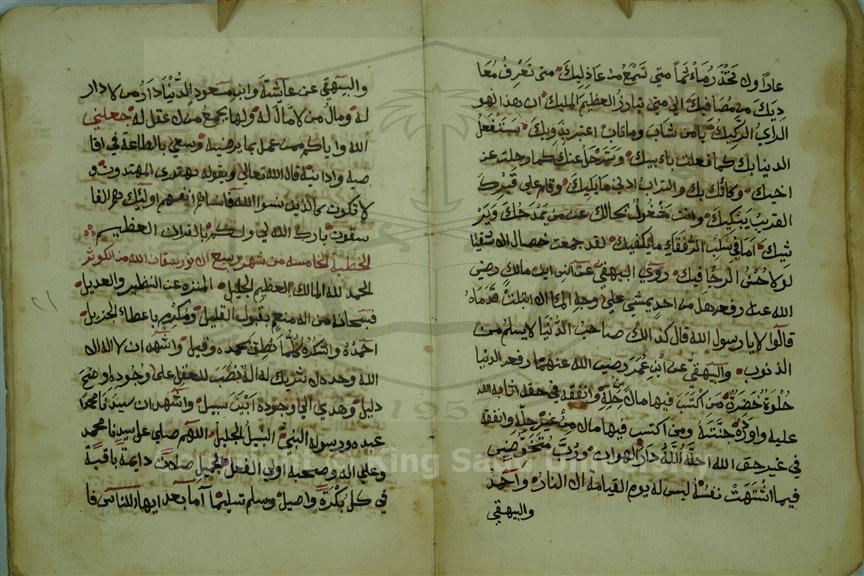 عادا ولا تحذر ماء ثما متى تسمع من عاذليك متى تعرف معا
ديك من مصافيك الى متى تبارز العظيم المليك ان هذا لهو
الراي الركيك يا من شاب وماتاب اعتر يدويك ستفعل
الدنيا بك كما فعلت بابيك وسترحل عنك كما رحلت عن
اخيك وكانك بك والتراب ادنى ما يليك وقام على قبرك
القريب يبكيك وانت مشغول بحالك عن من يمدحك وير
ثيك اما في سلب الرفقاء ما يكفيك لقد جمعت خصال الاشقيا
روى البيهقي عن انس ابن مالك رضي
الله عنه رفعه هل من احد يمشي على وجه الماء الا ابتلت قدماه
قالوا لا يا رسول الله قال كذالك صاحب الدنيا لا يسلم من
الذنوب والبيهقي عن ابن عمر رضي الله عنهما رفعه الدنيا
حلوة خضرة من اكتسب فيها مالا من حله وانفقه في حقه اثابه الله
عليه واورده جنته ومن اكتسب فيها مالا من غير حله وانفقه
في غير حق الله احله الله دار الهوان ورب متخوض
فيما اشتهت نفسه ليس له يوم القيامة الا النار واحمد
والبيهقي
والبيهقي عن عائشة وابن مسعود الدنيا دار من لا دار
له ومال من لا مال له ولها يجمع من لا عقل له جعلني
الله واياكم ممن عمل بما يرضيه وسعى بالطاعة في اقا
صيه وادانيه قال الله تعالى وبقوله يهتدي المهتدون و
لا تكونوا كالذين نسوا الله فانساهم انفسهم اوليك هم الفا
سقون بارك الله لي ولكم بالقران العظيم
الخطبة الخامسة من شهر ربيع الانور سقان الله من الكوثر
الحمد لله المالك العظيم الجليل المنزه عن النظير والعديل
فسبحانه من اله منعم بقبول القليل ومكرم باعطاء الجزيل
احمده واشكره كلما نطق بحمده وقيل واشهد ان لا اله الا
الله وحده لا شريك له اله نصب للعقل على وجوده اوضح
دليل وهدى الى وجوده ابين سبيل واشهد ان سيدنا محمدا
عبده ورسوله النبي النبيل الجليل اللهم صلي على سيدنا محمد
وعلى اله وصحبه اولي الفعل الجميل صلاة دايمة باقية
في كل بكرة واصيل وسلم تسليما اما بعد ايها الناس فا